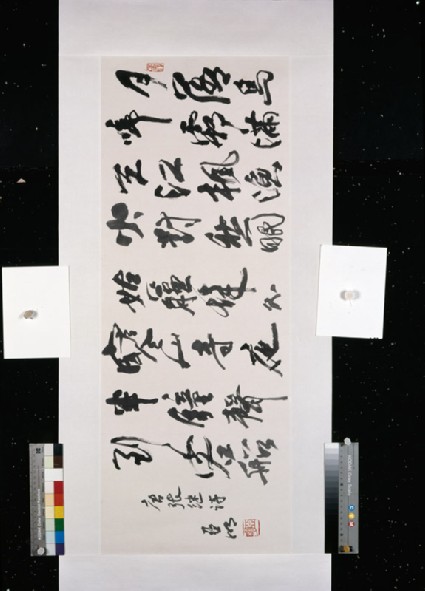 月落烏
啼霜滿
天江楓漁
火對愁眠
姑蘇城外
寒山寺夜
半鐘聲
到客船
唐張继诗
亞明